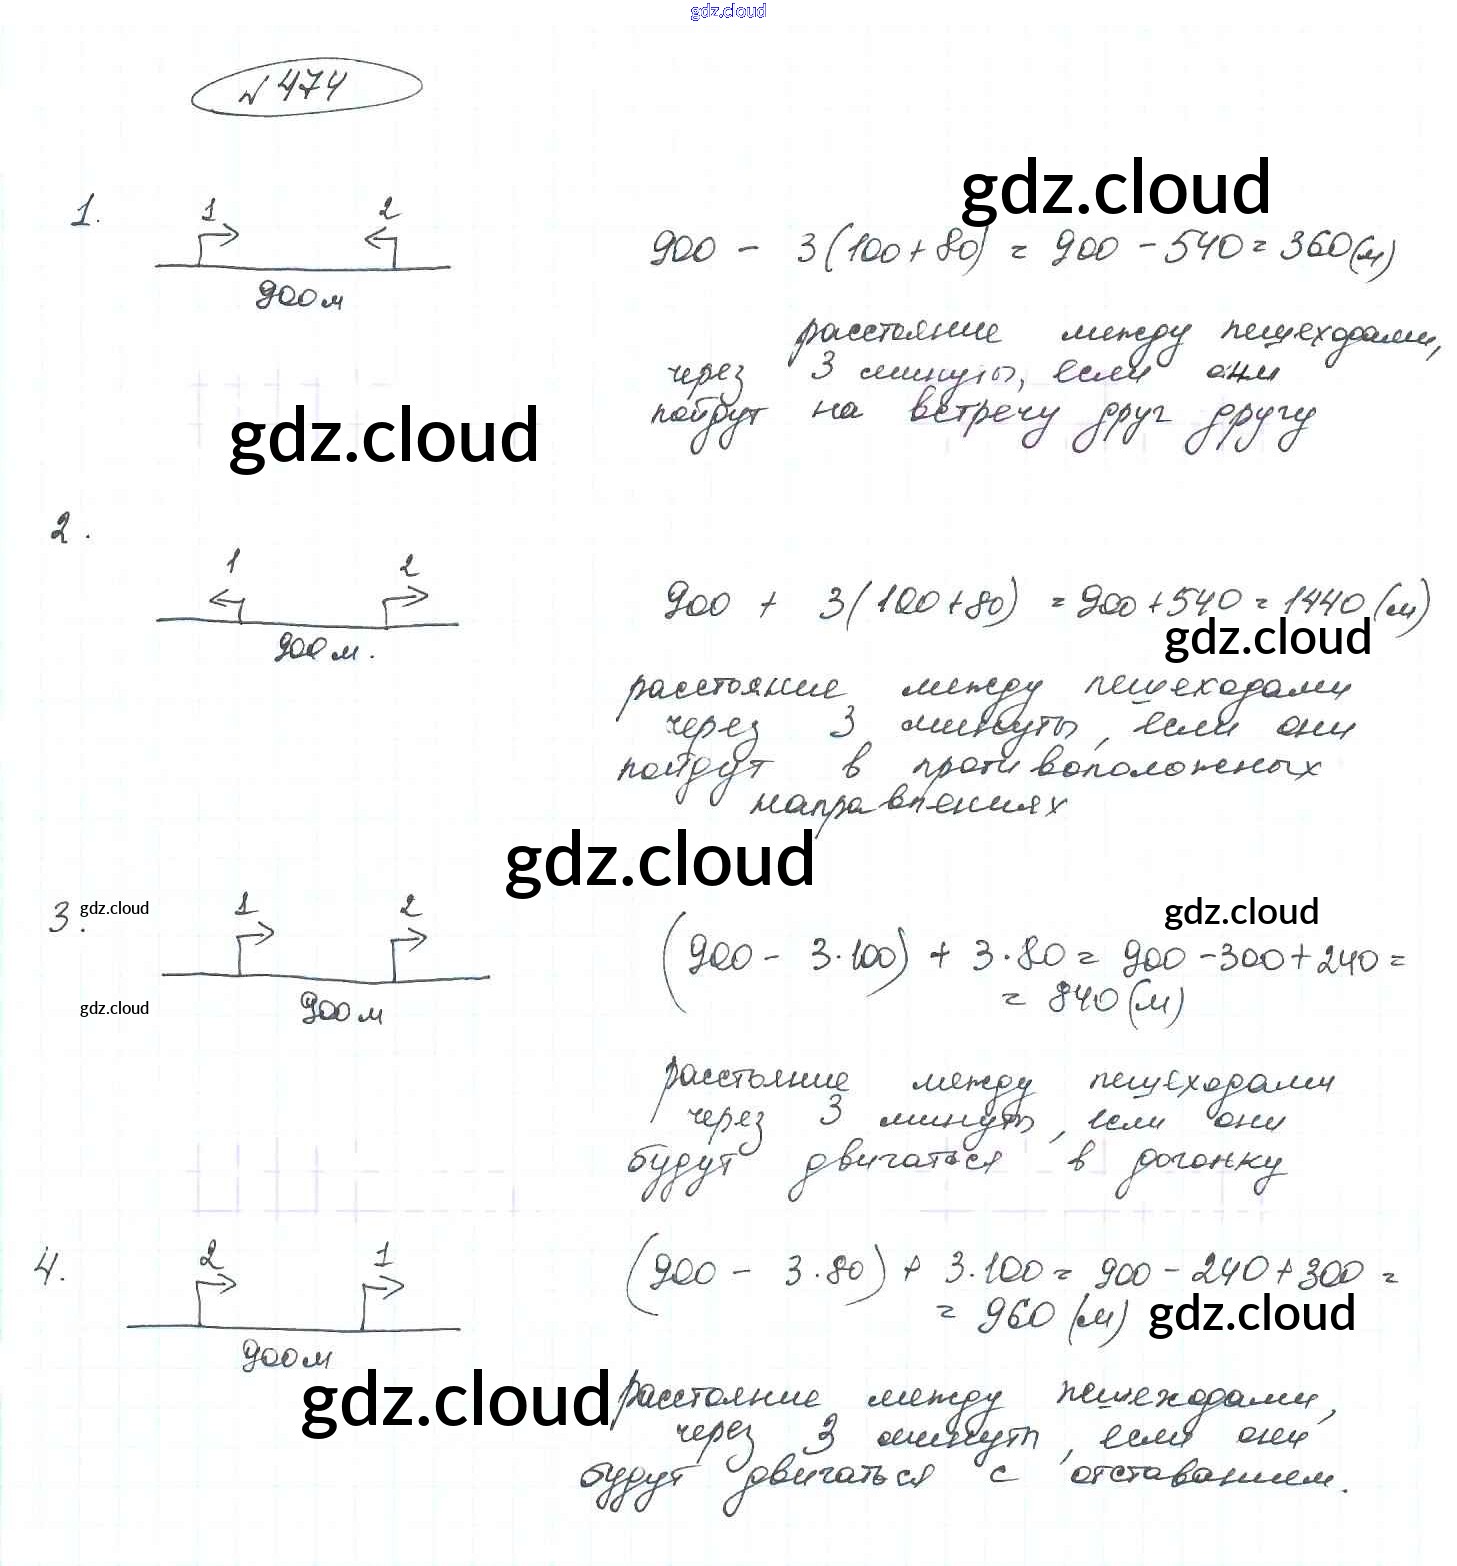 gdz.cloud
№ 474
gdz.cloud
1.
1 2
900 м
900 - 3(100+80) = 900 - 540 = 360 (м)
расстояние между пешеходами,
через 3 минуты, если они
пойдут на встречу друг другу
gdz.cloud
2.
1 2
900 м.
900 + 3(100+80) = 900+540 = 1440 (м)
gdz.cloud
расстояние между пешеходами
через 3 минуты, если они
пойдут в противоположных
направлениях
gdz.cloud
3. gdz.cloud
1 2
900 м
gdz.cloud
gdz.cloud
(900 - 3·100) + 3·80 = 900 - 300 + 240 =
= 840 (м)
расстояние между пешеходами
через 3 минуты, если они
будут двигаться в догонку
4.
2 1
900 м
(900 - 3·80) + 3·100 = 900 - 240 + 300 =
= 960 (м)
gdz.cloud
gdz.cloud
расстояние между пешеходами,
через 3 минуты, если они
будут двигаться с отставанием.